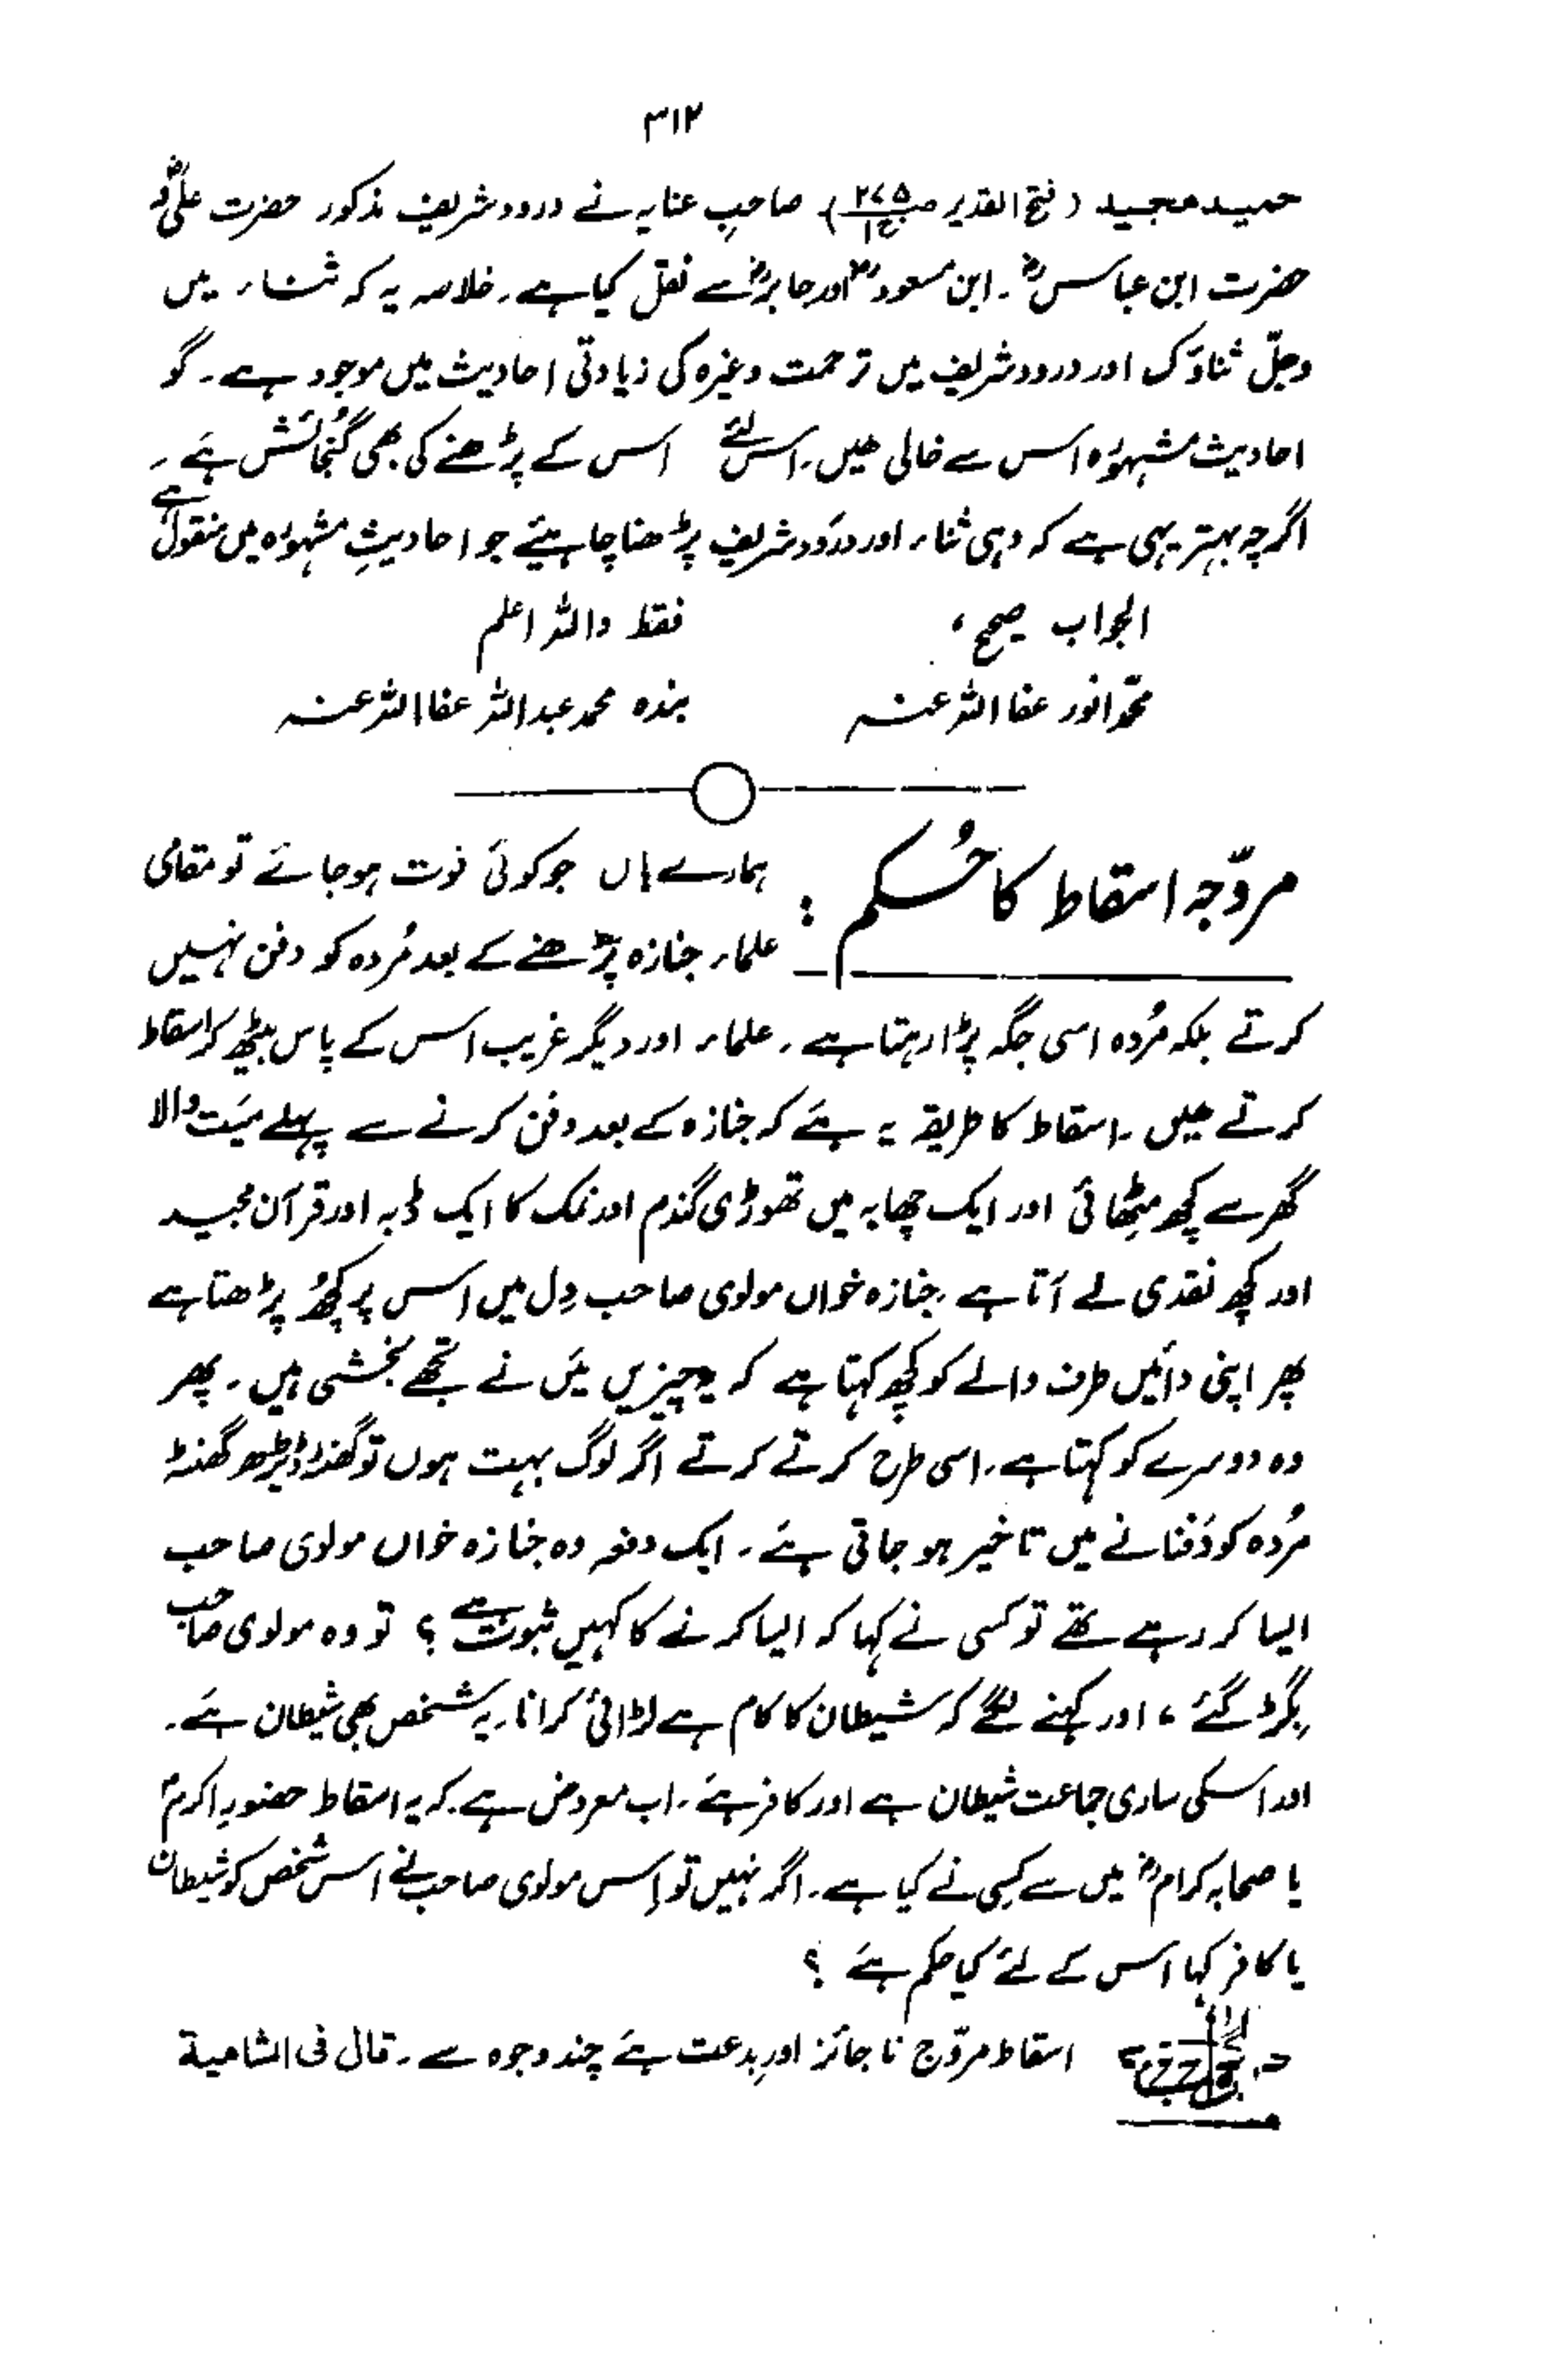 ۳۱۲
حمید مجید (فتح القدیر ص۲۷۵ ج۱) صاحبِ عنایہ نے درود شریف مذکور حضرت علیؓ
حضرت ابن عباسؓ۔ ابن مسعودؓ اور جابرؓ سے نقل کیا ہے۔ خلاصہ یہ کہ ثناء میں
وجلّ ثناؤک اور درود شریف میں ترحمت وغیرہ کی زیادتی احادیث میں موجود ہے۔ گو
احادیث مشہورہ اس سے خالی ہیں۔ اس لئے اس کے پڑھنے کی بھی گنجائش ہے۔
اگرچہ بہتر یہی ہے کہ وہی ثناء اور درود شریف پڑھنا چاہیئے جو احادیثِ مشہورہ میں منقول ہے
الجواب صحیح، فقط واللہ اعلم
محمد انور عفا اللہ عنہ بندہ محمد عبداللہ عفا اللہ عنہ
مروّجہ اسقاط کا حُکم : ہمارے ہاں جو کوئی فوت ہو جائے تو مقامی
علماء جنازہ پڑھنے کے بعد مُردہ کو دفن نہیں
کرتے بلکہ مُردہ اسی جگہ پڑا رہتا ہے۔ علماء اور دیگر غریب اس کے پاس بیٹھ کر اسقاط
کرتے ہیں۔ اسقاط کا طریقہ یہ ہے کہ جنازہ کے بعد دفن کرنے سے پہلے میّت والا
گھر سے کچھ مِٹھائی اور ایک چھابہ میں تھوڑی گندم اور نمک کا ایک ڈبہ اور قرآن مجید
اور کچھ نقدی لے آتا ہے۔ جنازہ خواں مولوی صاحب دِل میں اس پر کچھُ پڑھتا ہے
پھر اپنی دائیں طرف والے کو کچھ کہتا ہے کہ یہ چیزیں میں نے تجھے بخشی ہیں۔ پھر
وہ دوسرے کو کہتا ہے۔ اسی طرح کرتے کرتے اگر لوگ بہت ہوں تو گھنٹہ ڈیڑھ گھنٹہ
مُردہ کو دَفنانے میں تاخیر ہو جاتی ہے۔ ایک دفعہ وہ جنازہ خواں مولوی صاحب
ایسا کر رہے تھے تو کسی نے کہا کہ ایسا کرنے کا کہیں ثبوت ہے؟ تو وہ مولوی صاحب
بِگڑ گئے، اور کہنے لگے کہ شیطان کا کام ہے لڑائی کرانا۔ یہ شخص بھی شیطان ہے۔
اور اسکی ساری جماعت شیطان ہے اور کافر ہے۔ اب معروض ہے کہ یہ اسقاط حضورِ اکرمؐ
یا صحابہ کرامؓ میں سے کسی نے کیا ہے۔ اگر نہیں تو اِس مولوی صاحب نے اس شخص کو شیطان
یا کافر کہا اس کے لئے کیا حکم ہے ؟
اسقاط مروّج ناجائز اور بدعت ہے چند وجوہ سے۔ قال فی الشامیة